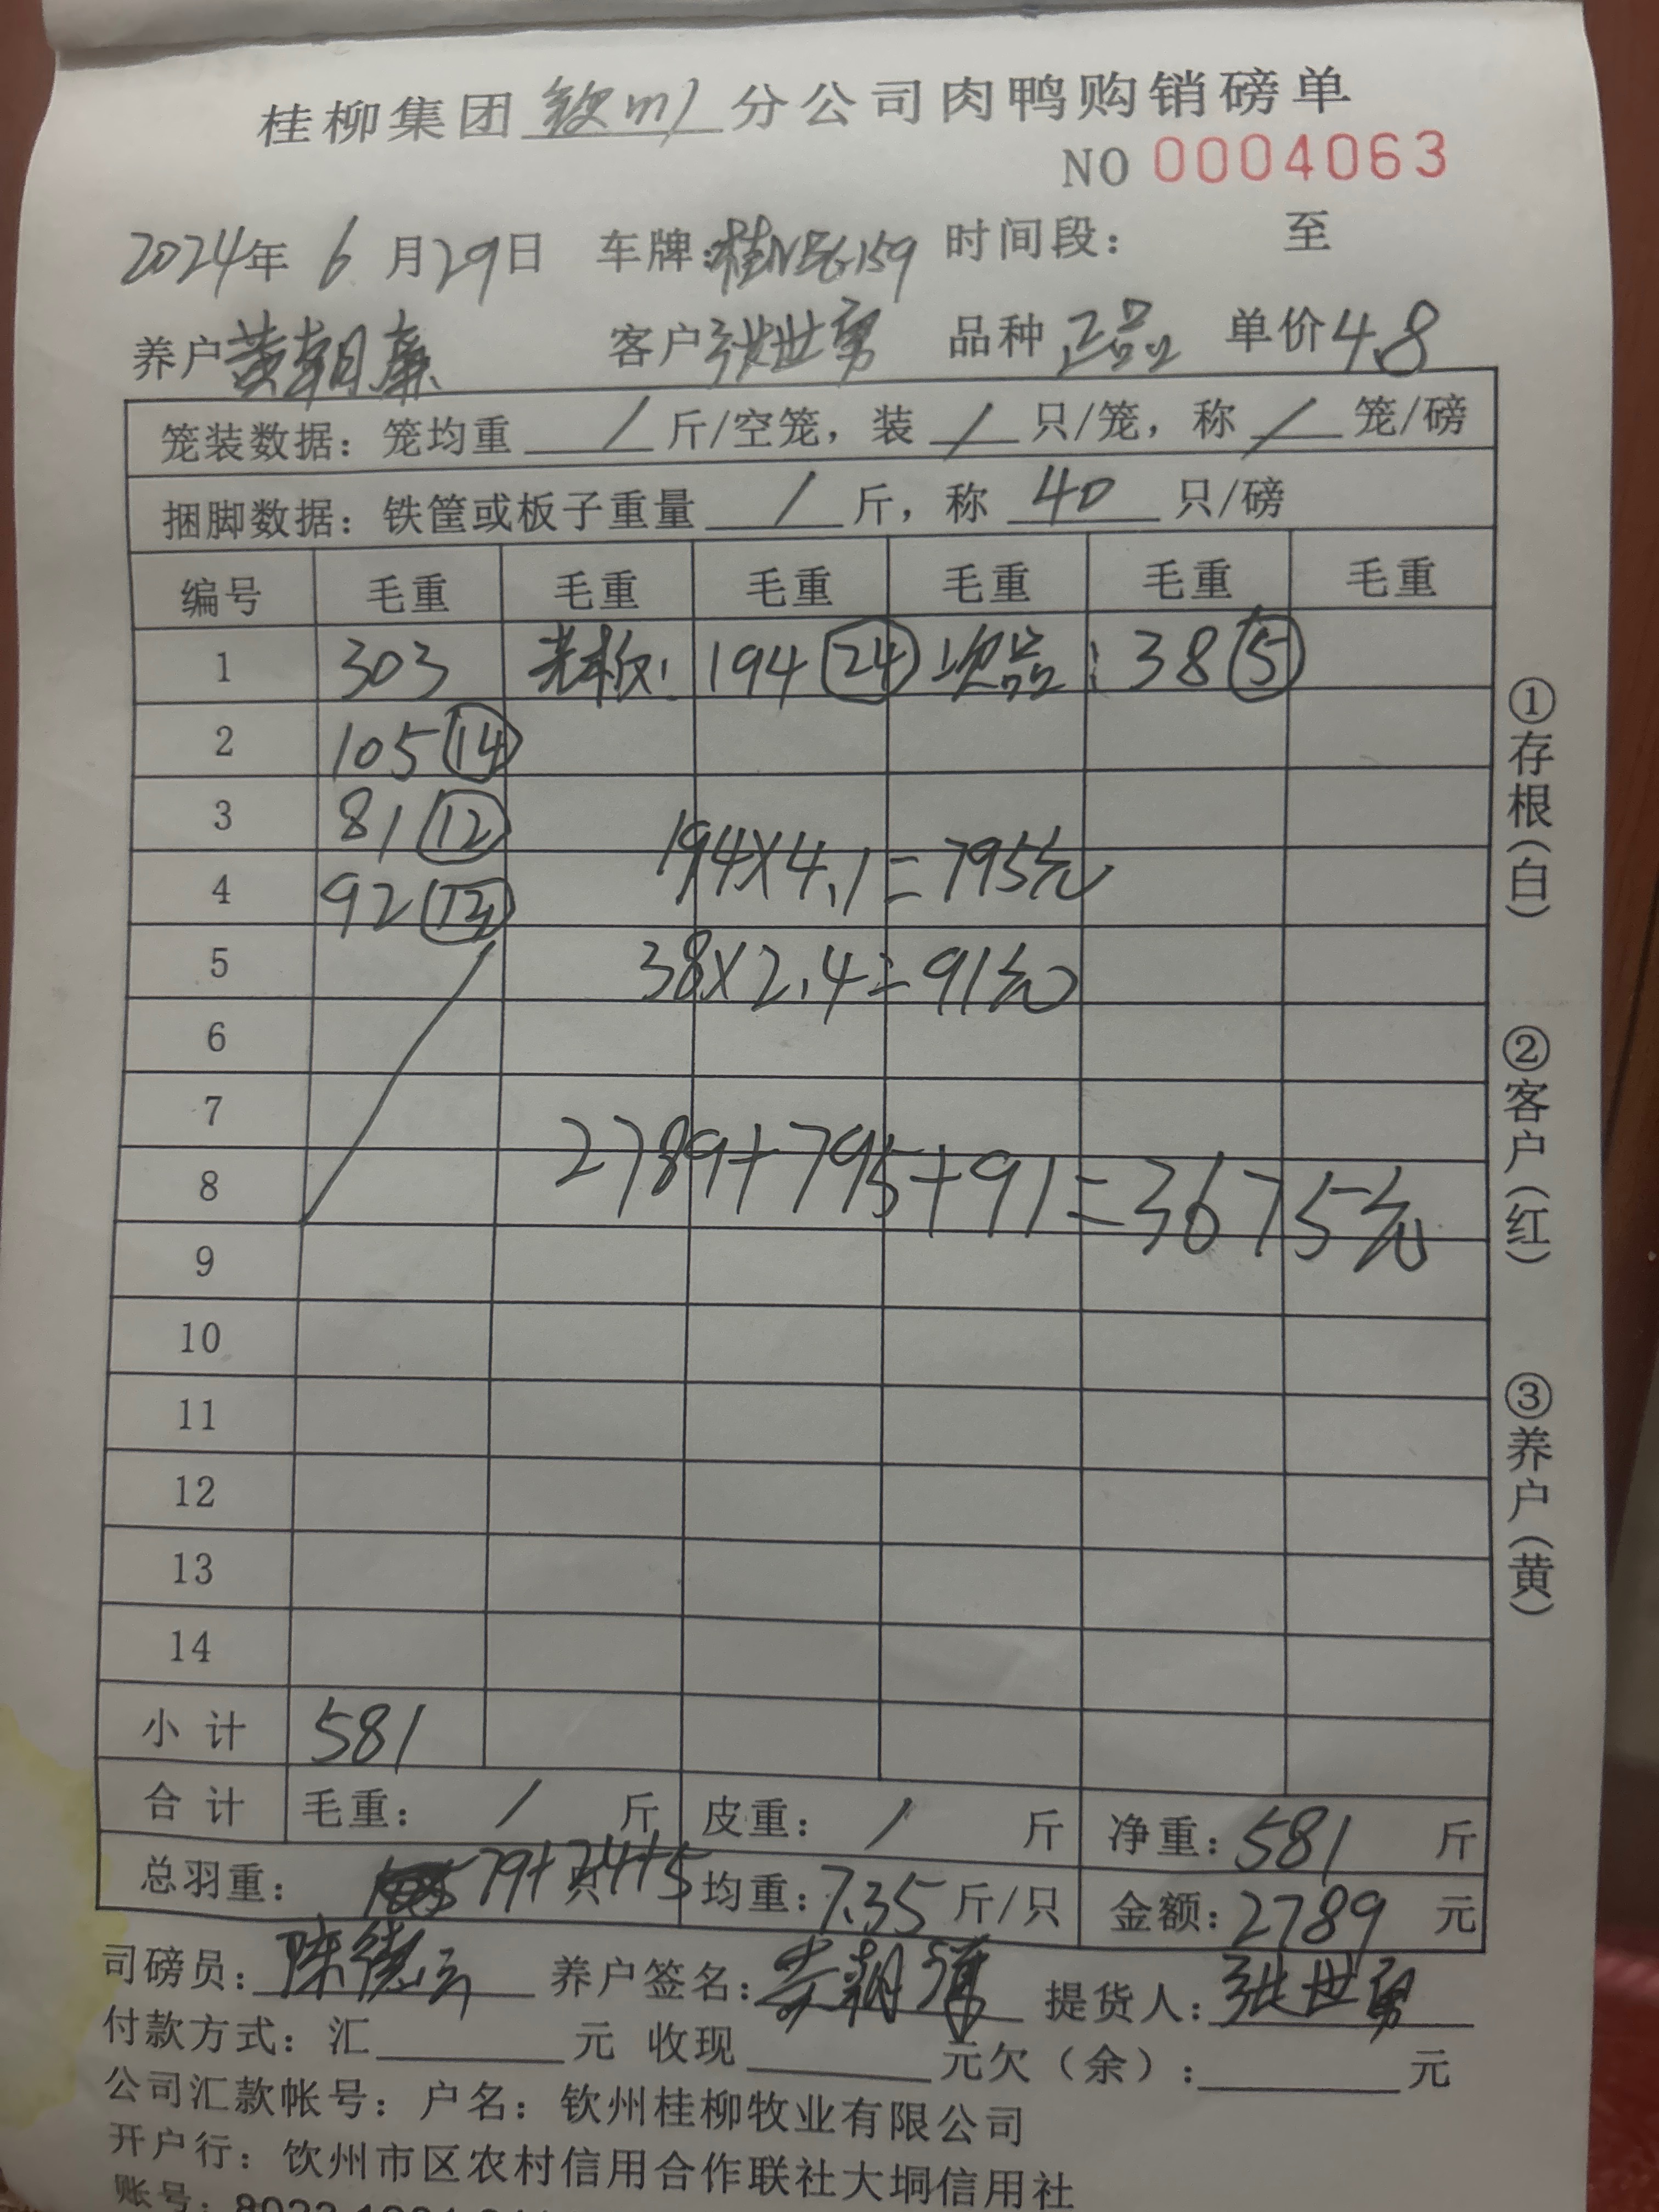 桂柳集团 钦州 分公司肉鸭购销磅单
NO 0004063
2024年 6 月29日 车牌:桂NEG159 时间段: 至
养户 黄朝廉 客户 张世勇 品种 正品 单价4.8
笼装数据: 笼均重 / 斤/空笼, 装 / 只/笼, 称 / 笼/磅
捆脚数据: 铁筐或板子重量 / 斤, 称 40 只/磅
编号 毛重 毛重 毛重 毛重 毛重 毛重
1 303 老板: 194 24 次品: 38 5
2 105 14
3 81 12
194×4.1=795元
4 92
5 38×2.4=91元
6
7
8 2789+795+91=3675元
9
10
11
12
13
14
小计 581
合计 毛重: / 斤 皮重: / 斤 净重: 581 斤
总羽重: 79+24+5 只 均重: 7.35 斤/只 金额: 2789 元
司磅员: 陈德云 养户签名: 黄朝廉 提货人: 张世勇
付款方式: 汇 元 收现 元欠(余): 元
公司汇款帐号: 户名: 钦州桂柳牧业有限公司
开户行: 钦州市区农村信用合作联社大垌信用社
账号:
①存根(白)
②客户(红)
③养户(黄)